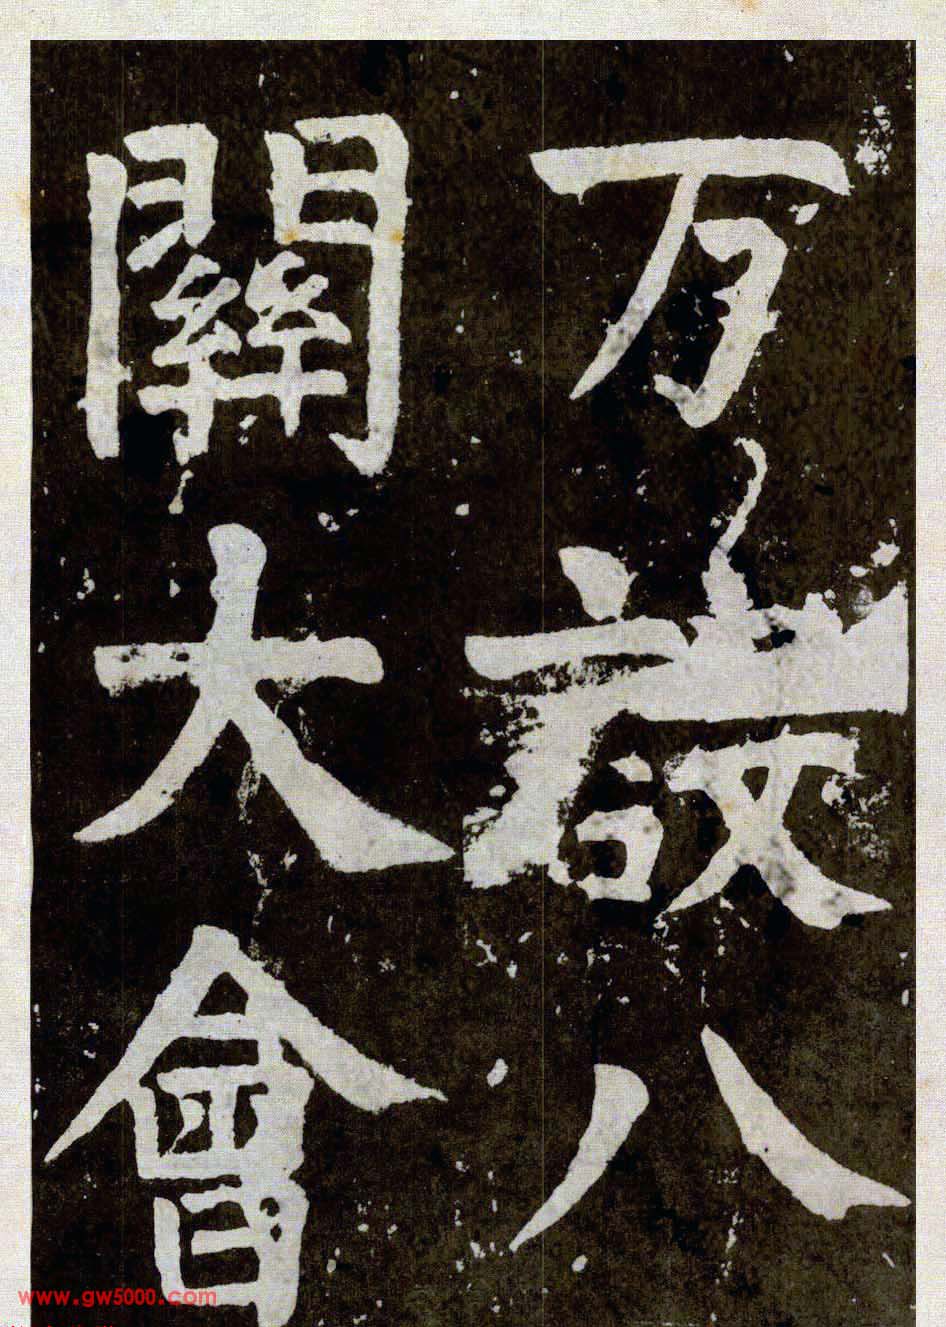 万設八
關大會
www.gw5000.com